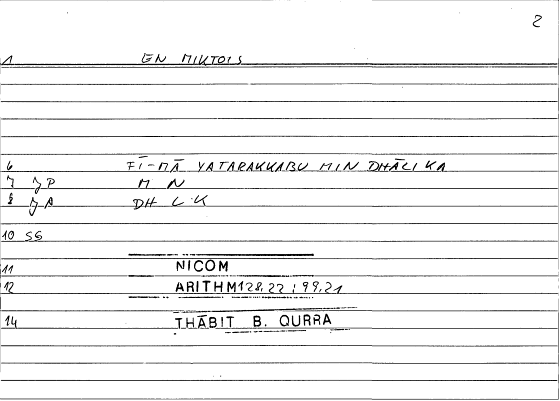 2
1 EN MIKTOIS
6 FĪ-MĀ YATARAKKABU MIN DHĀLIKA
7 JP M N
8 JA DH L K
10 SG
11 NICOM
12 ARITHM 128,22 ; 99,21
14 THĀBIT B. QURRA